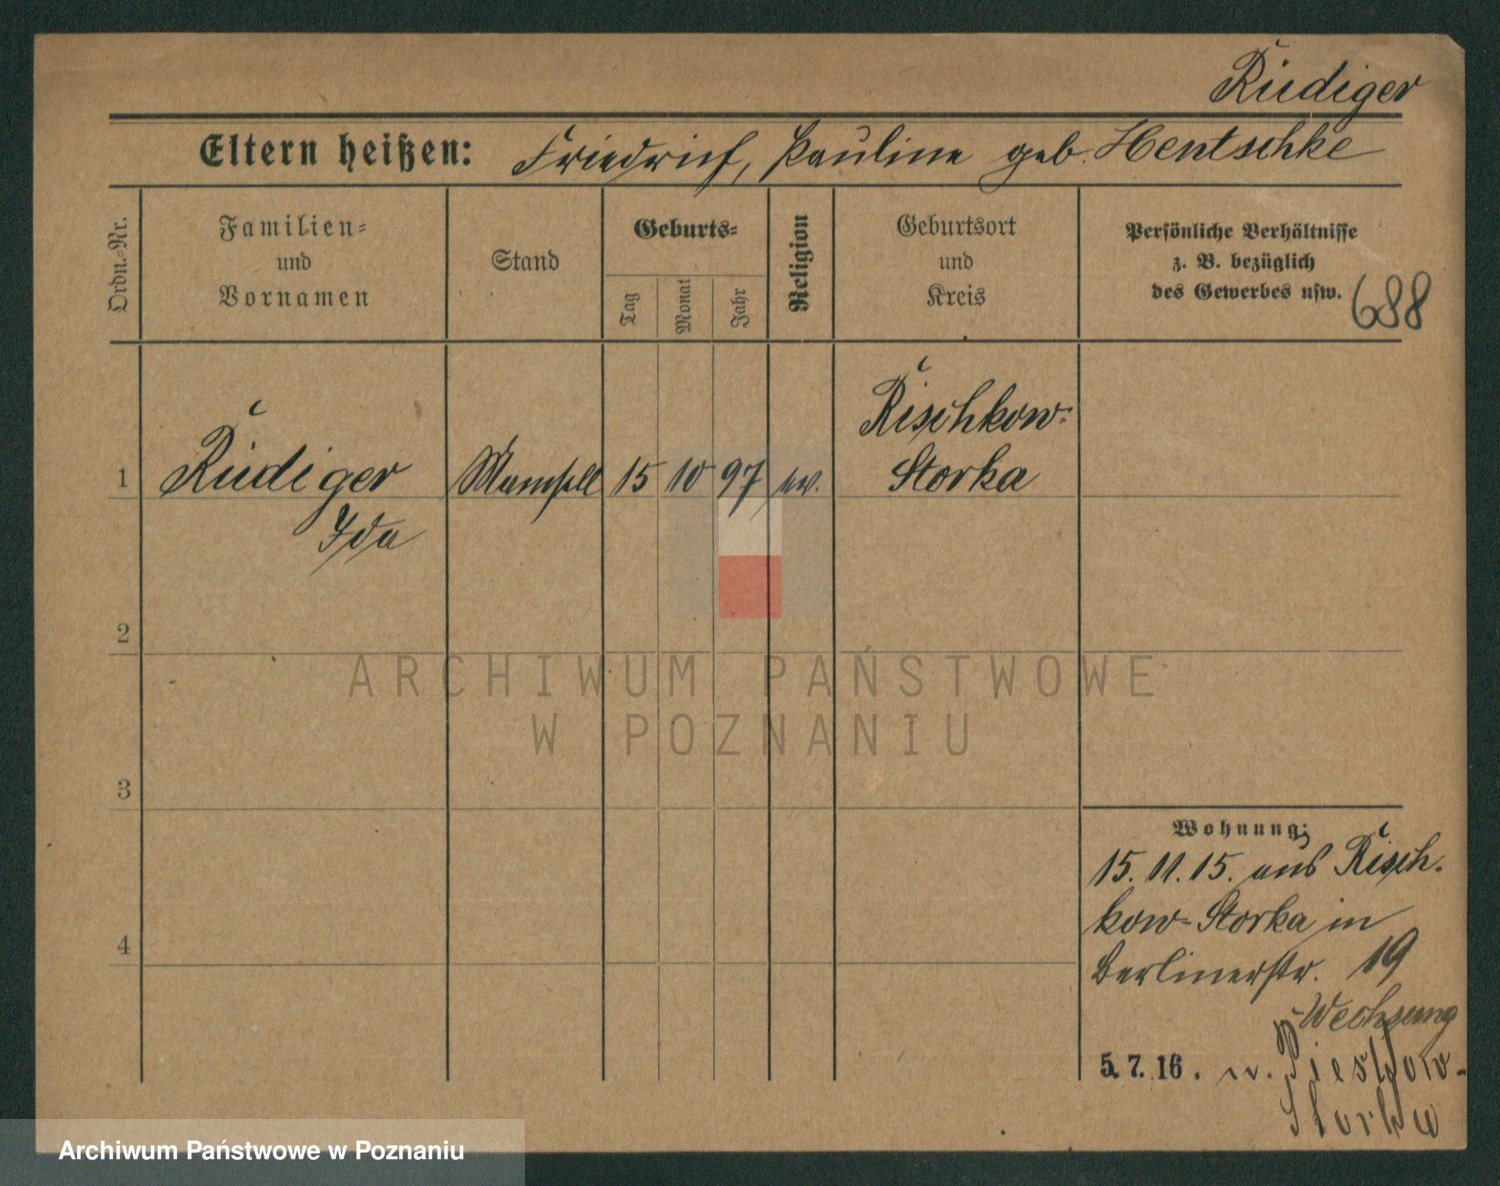 Rüdiger
Eltern heißen: Friedrich, Pauline geb. Hentschke
Ordn.-Nr.
Familien-
und
Vornamen
Stand
Geburts-
Tag
Monat
Jahr
Religion
Geburtsort
und
Kreis
Persönliche Verhältnisse
z. B. bezüglich
des Gewerbes usw.
688
1
Rüdiger
Ida
Mamsell
15
10
97
ev.
Rischkow-
Storka
2
3
4
Wohnung:
15.11.15. aus Risch-
kow-Storka in
Berlinerstr. 19
Wechsung
5.7.16. n.
Storka
ARCHIWUM PAŃSTWOWE
W POZNANIU
Archiwum Państwowe w Poznaniu